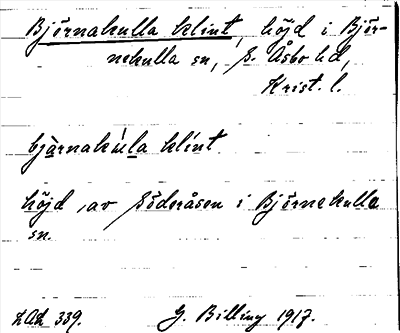 Björnakulla klint, höjd i Björ-
nekulla sn, S. Åsbo hd,
Krist. l.
bjàrnakúla klínt
höjd av Söderåsen i Björnekulla
sn.
LAL 339. G. Billing 1917.